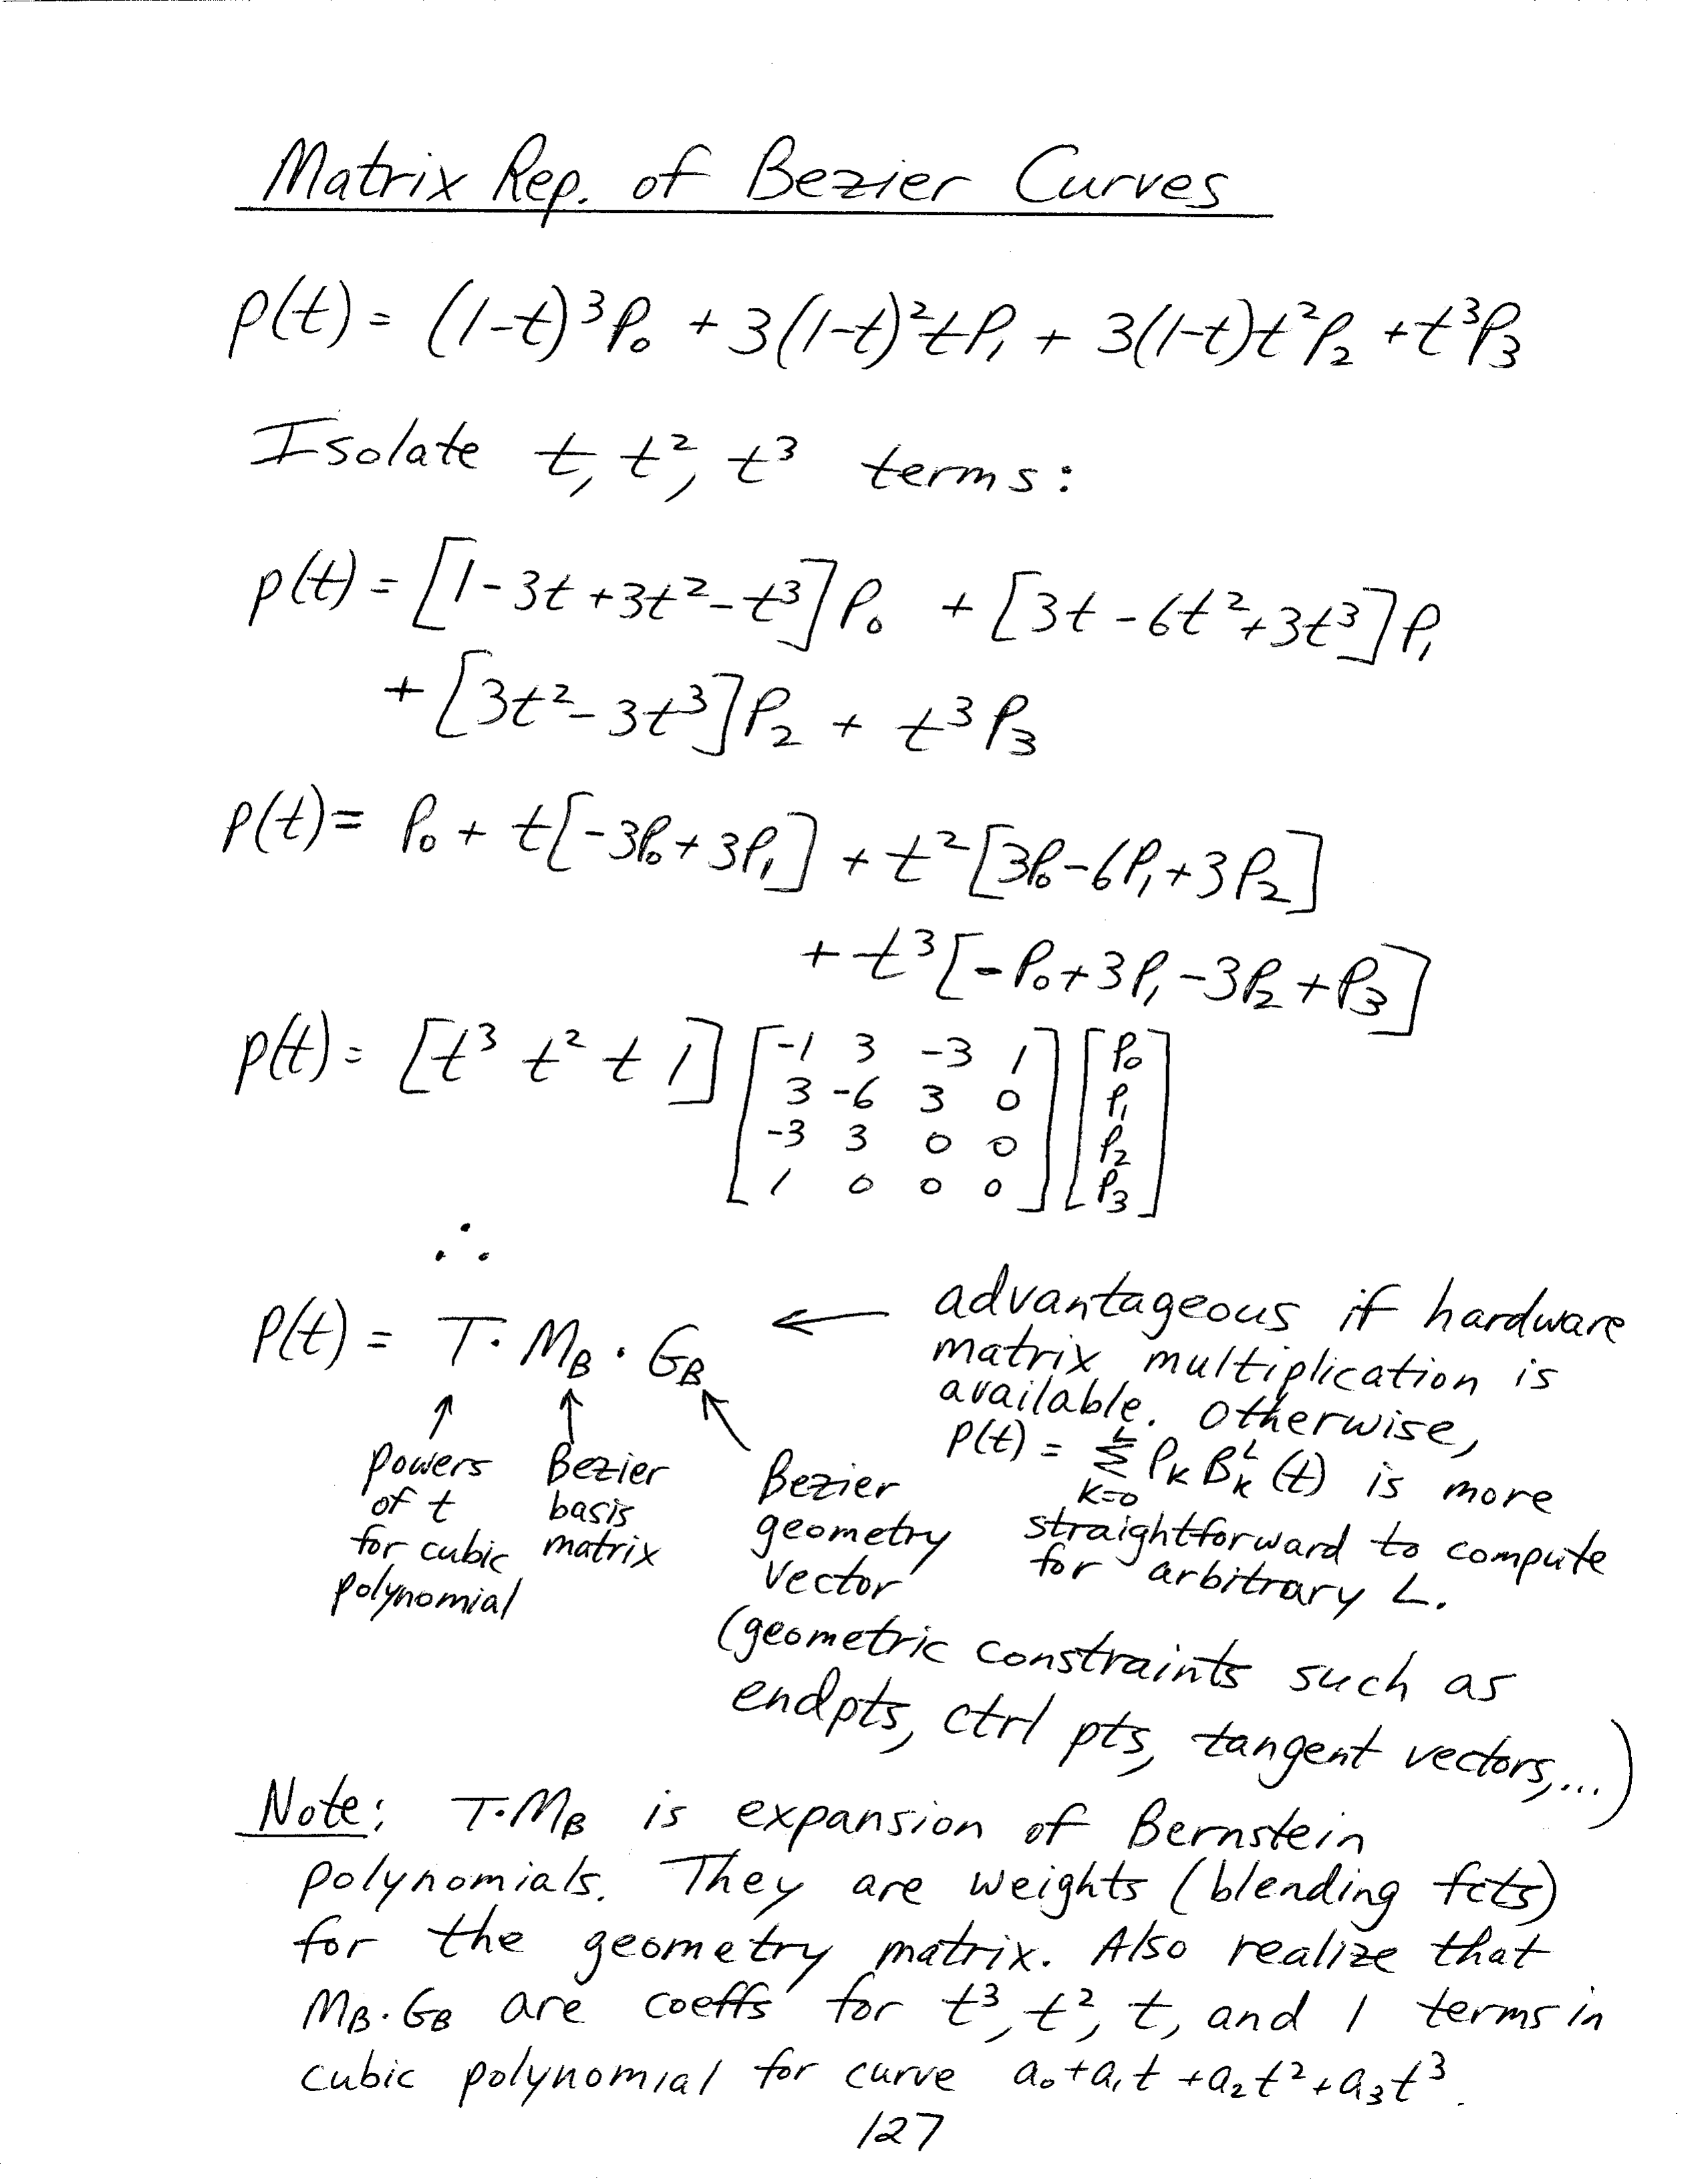 Matrix Rep. of Bezier Curves
p(t) = (1-t)³P₀ + 3(1-t)²tP₁ + 3(1-t)t²P₂ + t³P₃
Isolate t, t², t³ terms:
p(t) = [1-3t+3t²-t³]P₀ + [3t-6t²+3t³]P₁
+ [3t²-3t³]P₂ + t³P₃
p(t) = P₀ + t[-3P₀+3P₁] + t²[3P₀-6P₁+3P₂]
+ t³[-P₀+3P₁-3P₂+P₃]
p(t) = [t³ t² t 1] [-1 3 -3 1] [P₀]
3 -6 3 0 P₁
-3 3 0 0 P₂
1 0 0 0 P₃
∴
P(t) = T·M_B·G_B ←
advantageous if hardware
matrix multiplication is
available. Otherwise,
P(t) = Σ_{k=0}^{L} P_k B_k^L (t) is more
straightforward to compute
for arbitrary L.
powers
of t
for cubic
polynomial
Bezier
basis
matrix
Bezier
geometry
vector
(geometric constraints such as
endpts, ctrl pts, tangent vectors,...)
Note: T·M_B is expansion of Bernstein
polynomials. They are weights (blending fcts)
for the geometry matrix. Also realize that
M_B·G_B are coeffs for t³, t², t, and 1 terms in
cubic polynomial for curve a₀+a₁t+a₂t²+a₃t³.
127